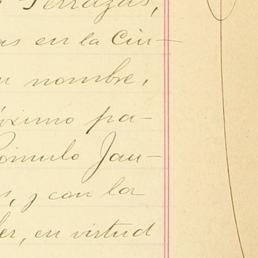 Terrazas,
as en la Ciu-
nombre,
óximo pa-
Rómulo Jau-
s, y con la
er, en virtud